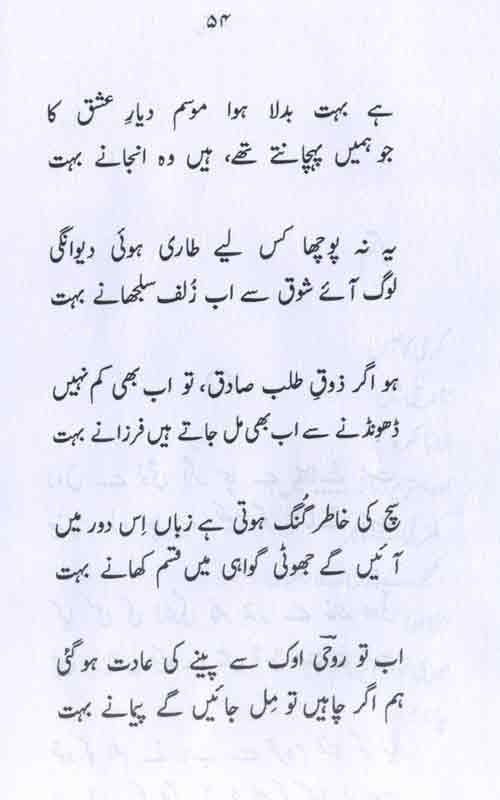 ۵۴
ہے بہت بدلا ہوا موسم دیارِ عشق کا
جو ہمیں پہچانتے تھے، ہیں وہ انجانے بہت
یہ نہ پوچھا کس لیے طاری ہوئی دیوانگی
لوگ آئے شوق سے اب زُلف سلجھانے بہت
ہو اگر ذوقِ طلب صادق، تو اب بھی کم نہیں
ڈھونڈنے سے اب بھی مل جاتے ہیں فرزانے بہت
سچ کی خاطر گُنگ ہوتی ہے زباں اِس دور میں
آئیں گے جھوٹی گواہی میں قسم کھانے بہت
اب تو روحیؔ اوک سے پینے کی عادت ہو گئی
ہم اگر چاہیں تو مِل جائیں گے پیمانے بہت